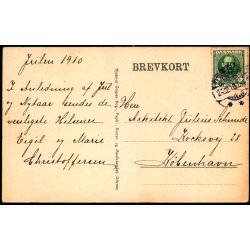 Julen 1910
BREVKORT
DANMARK
I Anledning af Jul
og Nytaar sendes de
venligste Hilsener
Eigil og Marie
Christoffersen
Herr
Arkitekt Julius Schmidt
Kocksvej
København